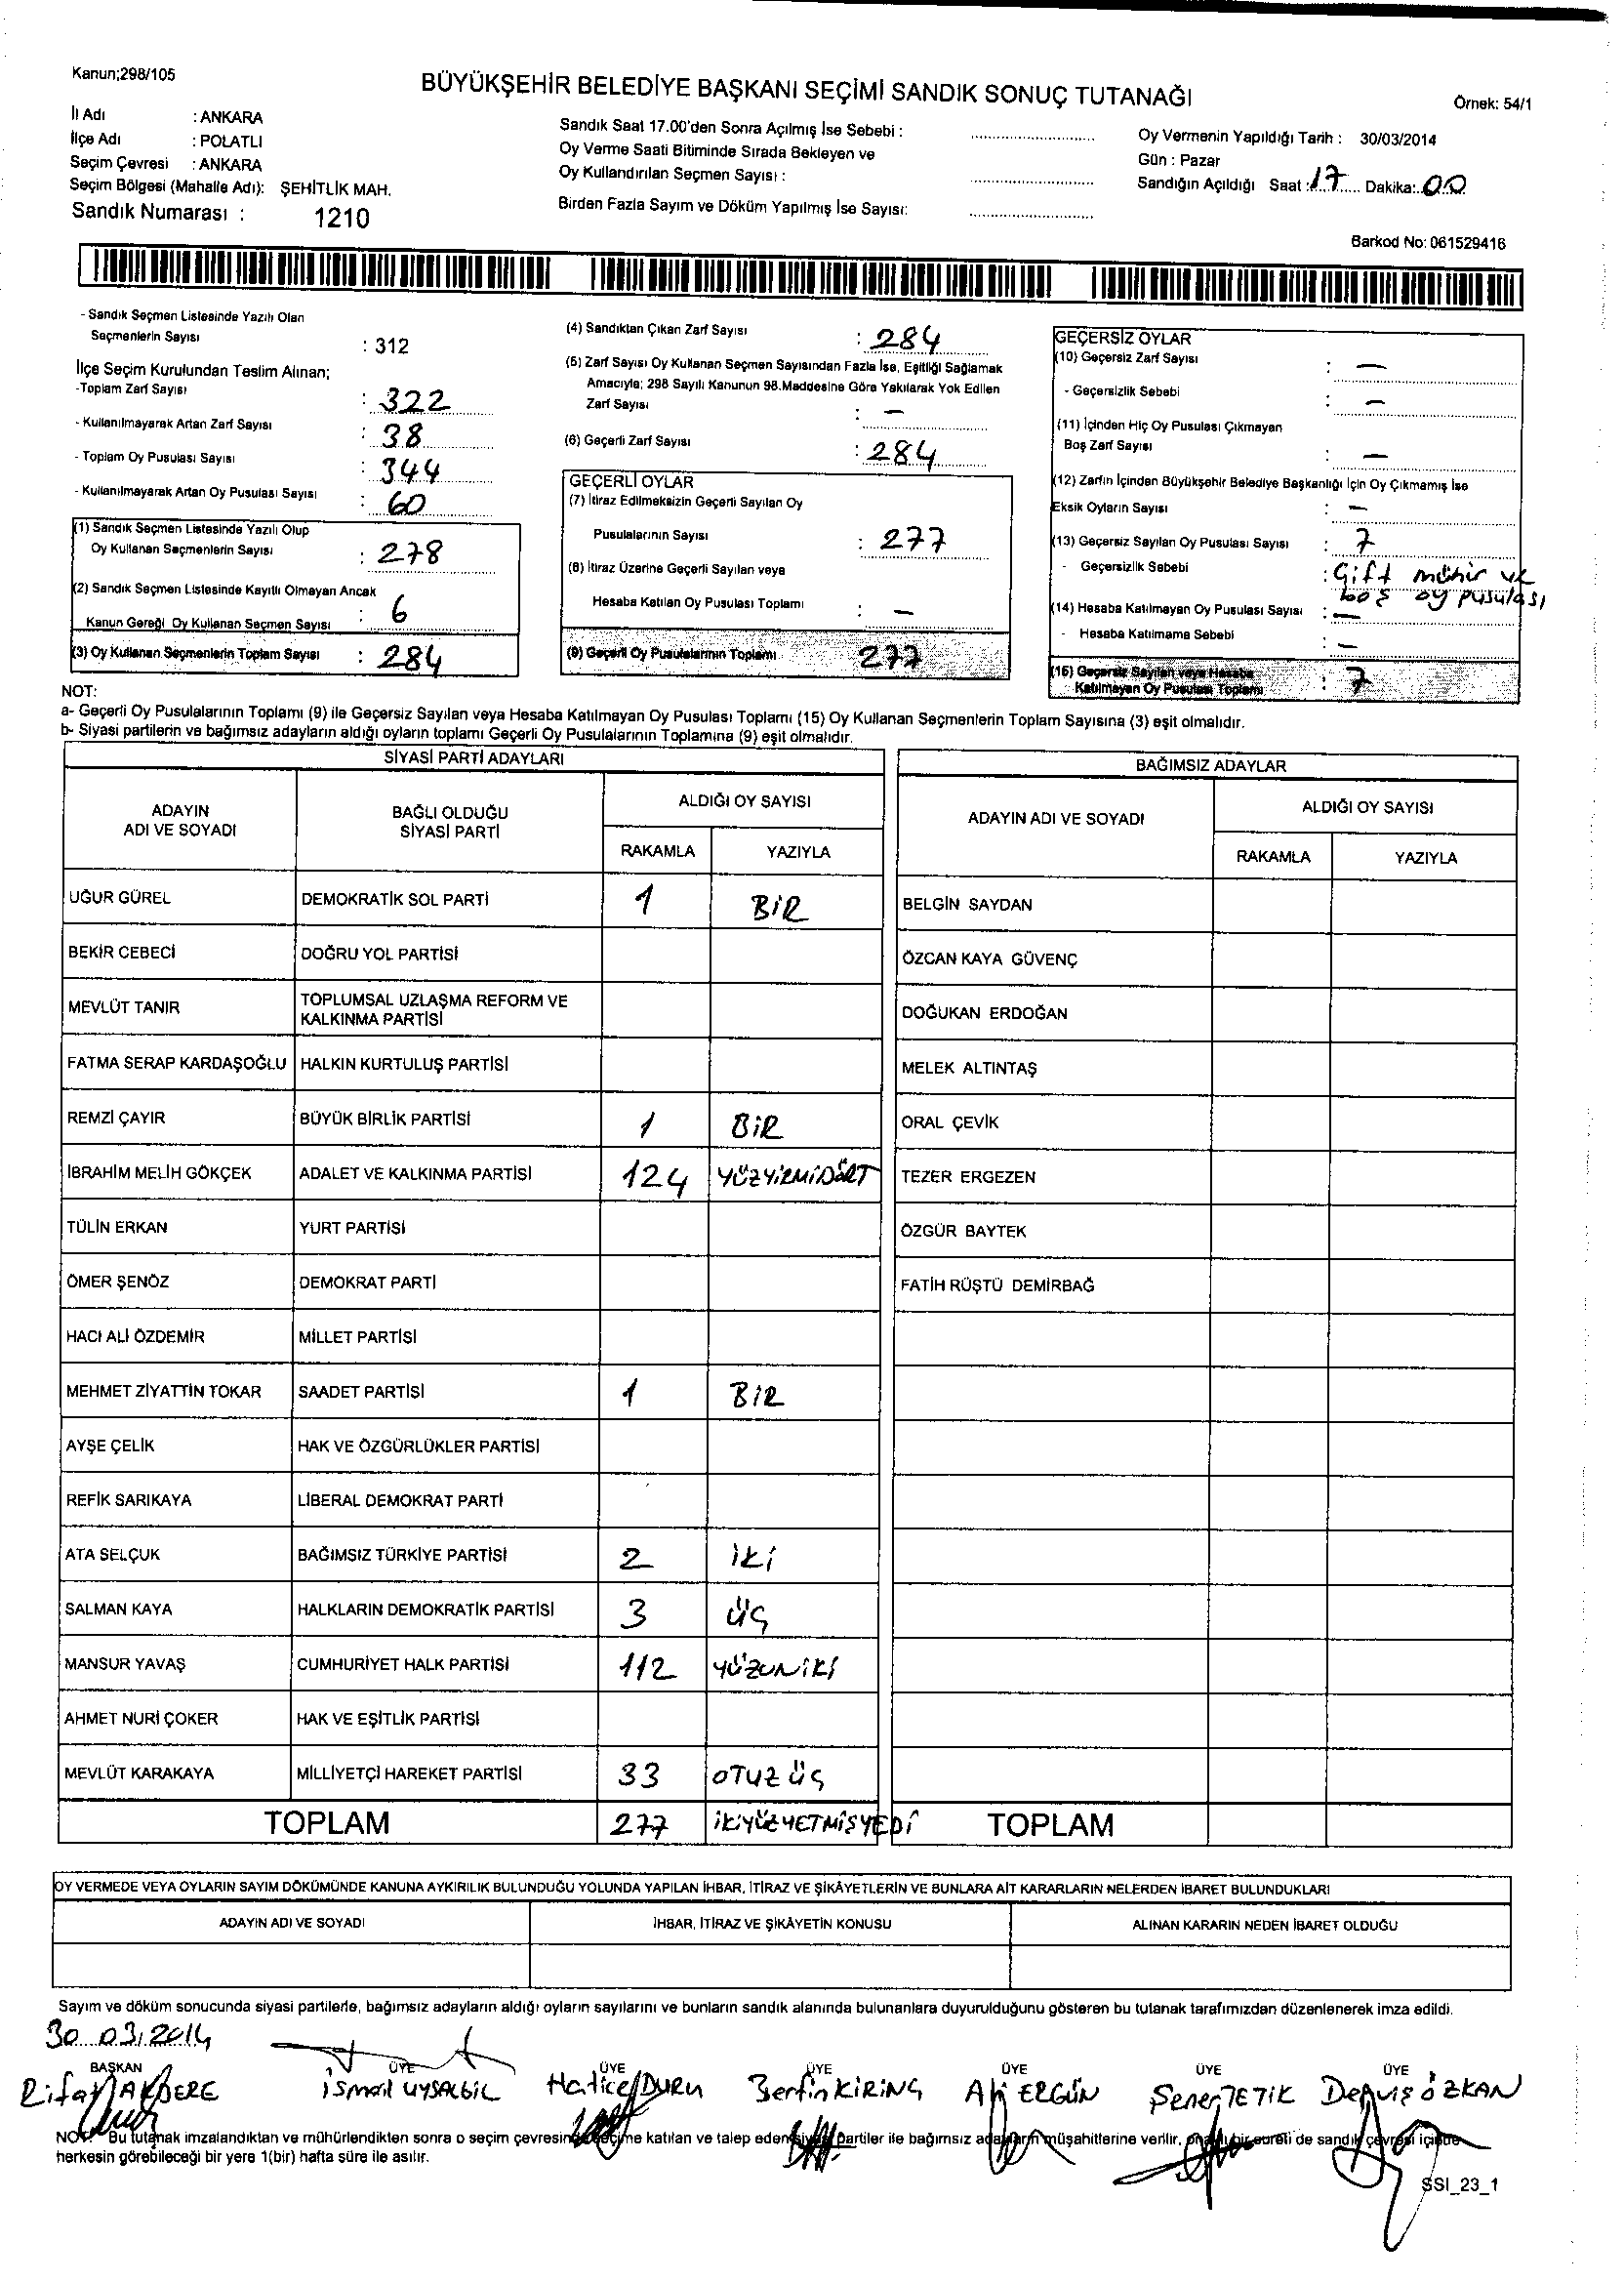 Kanun;298/105
BÜYÜKŞEHİR BELEDİYE BAŞKANI SEÇİMİ SANDIK SONUÇ TUTANAĞI
Örnek: 54/1
İl Adı : ANKARA
İlçe Adı : POLATLI
Seçim Çevresi : ANKARA
Seçim Bölgesi (Mahalle Adı): ŞEHİTLİK MAH.
Sandık Numarası : 1210
Sandık Saat 17.00'den Sonra Açılmış İse Sebebi :
Oy Verme Saati Bitiminde Sırada Bekleyen ve
Oy Kullandırılan Seçmen Sayısı :
Birden Fazla Sayım ve Döküm Yapılmış İse Sayısı:
Oy Vermenin Yapıldığı Tarih : 30/03/2014
Gün : Pazar
Sandığın Açıldığı Saat : 17 Dakika: 00
Barkod No: 061529416
- Sandık Seçmen Listesinde Yazılı Olan
Seçmenlerin Sayısı : 312
İlçe Seçim Kurulundan Teslim Alınan;
-Toplam Zarf Sayısı : 322
- Kullanılmayarak Artan Zarf Sayısı : 38
- Toplam Oy Pusulası Sayısı : 344
- Kullanılmayarak Artan Oy Pusulası Sayısı : 60
(1) Sandık Seçmen Listesinde Yazılı Olup
Oy Kullanan Seçmenlerin Sayısı : 278
(2) Sandık Seçmen Listesinde Kayıtlı Olmayan Ancak
Kanun Gereği Oy Kullanan Seçmen Sayısı : 6
(3) Oy Kullanan Seçmenlerin Toplam Sayısı : 284
(4) Sandıktan Çıkan Zarf Sayısı : 284
(5) Zarf Sayısı Oy Kullanan Seçmen Sayısından Fazla İse, Eşitliği Sağlamak
Amacıyla; 298 Sayılı Kanunun 98.Maddesine Göre Yakılarak Yok Edilen
Zarf Sayısı : —
(6) Geçerli Zarf Sayısı : 284
GEÇERLİ OYLAR
(7) İtiraz Edilmeksizin Geçerli Sayılan Oy
Pusulalarının Sayısı : 277
(8) İtiraz Üzerine Geçerli Sayılan veya
Hesaba Katılan Oy Pusulası Toplamı : —
(9) Geçerli Oy Pusulalarının Toplamı 277
GEÇERSİZ OYLAR
(10) Geçersiz Zarf Sayısı : —
- Geçersizlik Sebebi : —
(11) İçinden Hiç Oy Pusulası Çıkmayan
Boş Zarf Sayısı : —
(12) Zarfın İçinden Büyükşehir Belediye Başkanlığı İçin Oy Çıkmamış İse
Eksik Oyların Sayısı : —
(13) Geçersiz Sayılan Oy Pusulası Sayısı : 7
- Geçersizlik Sebebi : Çift mühür ve
boş oy pusulası
(14) Hesaba Katılmayan Oy Pusulası Sayısı : —
- Hesaba Katılmama Sebebi : —
(15) Geçersiz Sayılan veya Hesaba
Katılmayan Oy Pusulası Toplamı : 7
NOT:
a- Geçerli Oy Pusulalarının Toplamı (9) ile Geçersiz Sayılan veya Hesaba Katılmayan Oy Pusulası Toplamı (15) Oy Kullanan Seçmenlerin Toplam Sayısına (3) eşit olmalıdır.
b- Siyasi partilerin ve bağımsız adayların aldığı oyların toplamı Geçerli Oy Pusulalarının Toplamına (9) eşit olmalıdır.
SİYASİ PARTİ ADAYLARI
ADAYIN
ADI VE SOYADI
BAĞLI OLDUĞU
SİYASİ PARTİ
ALDIĞI OY SAYISI
RAKAMLA YAZIYLA
UĞUR GÜREL DEMOKRATİK SOL PARTİ 1 BİR
BEKİR CEBECİ DOĞRU YOL PARTİSİ
MEVLÜT TANIR TOPLUMSAL UZLAŞMA REFORM VE
KALKINMA PARTİSİ
FATMA SERAP KARDAŞOĞLU HALKIN KURTULUŞ PARTİSİ
REMZİ ÇAYIR BÜYÜK BİRLİK PARTİSİ 1 BİR
İBRAHİM MELİH GÖKÇEK ADALET VE KALKINMA PARTİSİ 124 YÜZYİRMİDÖRT
TÜLİN ERKAN YURT PARTİSİ
ÖMER ŞENÖZ DEMOKRAT PARTİ
HACI ALİ ÖZDEMİR MİLLET PARTİSİ
MEHMET ZİYATTİN TOKAR SAADET PARTİSİ 1 BİR
AYŞE ÇELİK HAK VE ÖZGÜRLÜKLER PARTİSİ
REFİK SARIKAYA LİBERAL DEMOKRAT PARTİ
ATA SELÇUK BAĞIMSIZ TÜRKİYE PARTİSİ 2 İKİ
SALMAN KAYA HALKLARIN DEMOKRATİK PARTİSİ 3 ÜÇ
MANSUR YAVAŞ CUMHURİYET HALK PARTİSİ 112 YÜZONİKİ
AHMET NURİ ÇOKER HAK VE EŞİTLİK PARTİSİ
MEVLÜT KARAKAYA MİLLİYETÇİ HAREKET PARTİSİ 33 OTUZ ÜÇ
TOPLAM 277 İKİYÜZYETMİŞYEDİ
BAĞIMSIZ ADAYLAR
ADAYIN ADI VE SOYADI
ALDIĞI OY SAYISI
RAKAMLA YAZIYLA
BELGİN SAYDAN
ÖZCAN KAYA GÜVENÇ
DOĞUKAN ERDOĞAN
MELEK ALTINTAŞ
ORAL ÇEVİK
TEZER ERGEZEN
ÖZGÜR BAYTEK
FATİH RÜŞTÜ DEMİRBAĞ
TOPLAM
OY VERMEDE VEYA OYLARIN SAYIM DÖKÜMÜNDE KANUNA AYKIRILIK BULUNDUĞU YOLUNDA YAPILAN İHBAR, İTİRAZ VE ŞİKÂYETLERİN VE BUNLARA AİT KARARLARIN NELERDEN İBARET BULUNDUKLARI
ADAYIN ADI VE SOYADI İHBAR, İTİRAZ VE ŞİKÂYETİN KONUSU ALINAN KARARIN NEDEN İBARET OLDUĞU
Sayım ve döküm sonucunda siyasi partilerle, bağımsız adayların aldığı oyların sayılarını ve bunların sandık alanında bulunanlara duyurulduğunu gösteren bu tutanak tarafımızdan düzenlenerek imza edildi.
30.03.2014
BAŞKAN ÜYE ÜYE ÜYE ÜYE ÜYE ÜYE
Rıfat AKDERE İsmail UYSALGİL Hatice DURU Berfin KIRINÇ Ali ERGÜN Şener TETİK Derviş ÖZKAN
NOT: Bu tutanak imzalandıktan ve mühürlendikten sonra o seçim çevresinde seçime katılan ve talep eden siyasi partiler ile bağımsız adayların müşahitlerine verilir, onaylı bir sureti de sandık çevresi içinde
herkesin görebileceği bir yere 1(bir) hafta süre ile asılır.
SSI_23_1